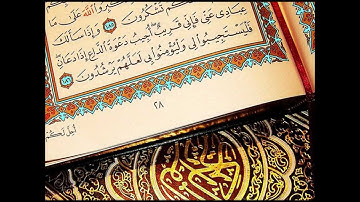 اللَّهَ عَلَىٰ مَا
تَشْكُرُونَ ١٨٥ وَإِذَا سَأَلَكَ
عِبَادِي عَنِّي فَإِنِّي قَرِيبٌ أُجِيبُ دَعْوَةَ الدَّاعِ إِذَا دَعَانِ
فَلْيَسْتَجِيبُوا لِي وَلْيُؤْمِنُوا بِي لَعَلَّهُمْ يَرْشُدُونَ ١٨٦
٢٨